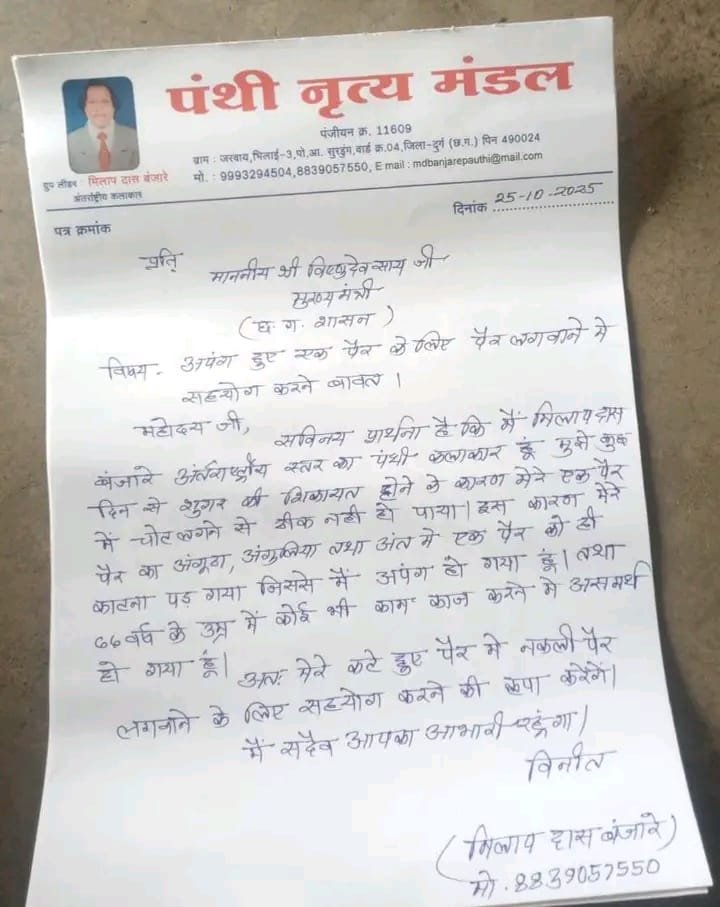 पंथी नृत्य मंडल
पंजीयन क्र. 11609
ग्राम : जरवाय,भिलाई-3,पो.आ. सुरडुंग,वार्ड क्र.04,जिला-दुर्ग (छ.ग.) पिन 490024
मो. : 9993294504,8839057550, E mail : mdbanjarepauthi@mail.com
ग्रुप लीडर : मिलाप दास बंजारे
अंतर्राष्ट्रीय कलाकार
दिनांक 25-10-2025
पत्र क्रमांक
प्रति
माननीय श्री विष्णुदेव साय जी
मुख्यमंत्री
(छ. ग. शासन)
विषय - अपंग हुए एक पैर के लिए पैर लगवाने मे
सहयोग करने बावत ।
महोदय जी,
सविनय प्रार्थना है कि मैं मिलाप दास
बंजारे अंर्तराष्ट्रीय स्तर का पंथी कलाकार हूं मुझे कुछ
दिन से शुगर की शिकायत होने के कारण मेरे एक पैर
में चोट लगने से ठीक नही हो पाया। इस कारण मेरे
पैर का अंगूठा, अंगुलिया तथा अंत मे एक पैर को ही
काटना पड़ गया जिससे मैं अपंग हो गया हूं। तथा
66 वर्ष के उम्र में कोई भी काम काज करने मे असमर्थ
हो गया हूं।
अतः मेरे कटे हुए पैर मे नकली पैर
लगवाने के लिए सहयोग करने की कृपा करेंगें।
मैं सदैव आपका आभारी रहूंगा।
विनीत
(मिलाप दास बंजारे)
मो. 8839057550